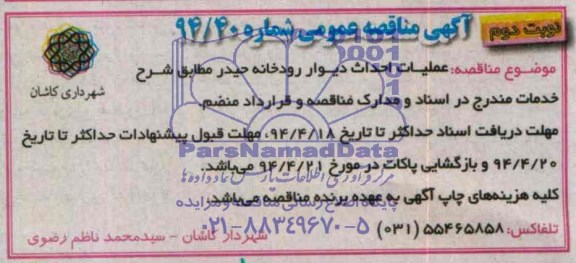 آگهی مناقصه عمومی شماره ۹۴/۴۰
نوبت دوم
شهرداری کاشان
موضوع مناقصه: عملیات احداث دیوار رودخانه حیدر مطابق شرح
خدمات مندرج در اسناد و مدارک مناقصه و قرارداد منضم.
مهلت دریافت اسناد حداکثر تا تاریخ ۹۴/۴/۱۸، مهلت قبول پیشنهادات حداکثر تا تاریخ
۹۴/۴/۲۰ و بازگشایی پاکات در مورخ ۹۴/۴/۲۱ می‌باشد.
کلیه هزینه‌های چاپ آگهی به عهده برنده مناقصه می‌باشد.
تلفاکس: ۵۵۴۶۵۸۵۸ (۰۳۱)
شهردار کاشان - سیدمحمد ناظم رضوی
ParsNamadData
۰۲۱-۸۸۳۴۹۶۷۰-۵